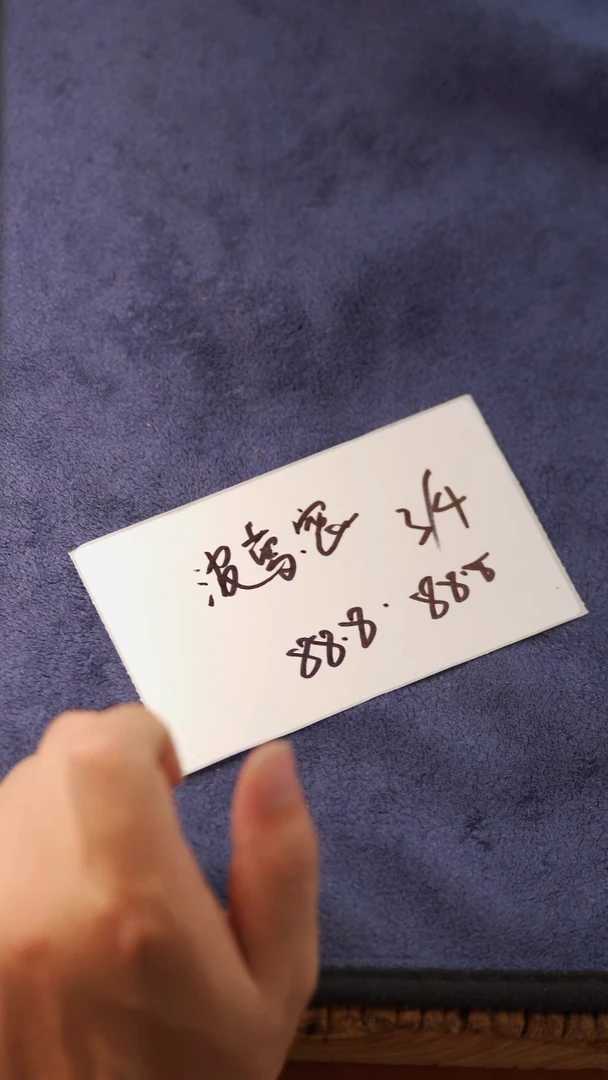 波鸞窓 3/4
88.8. 88.8